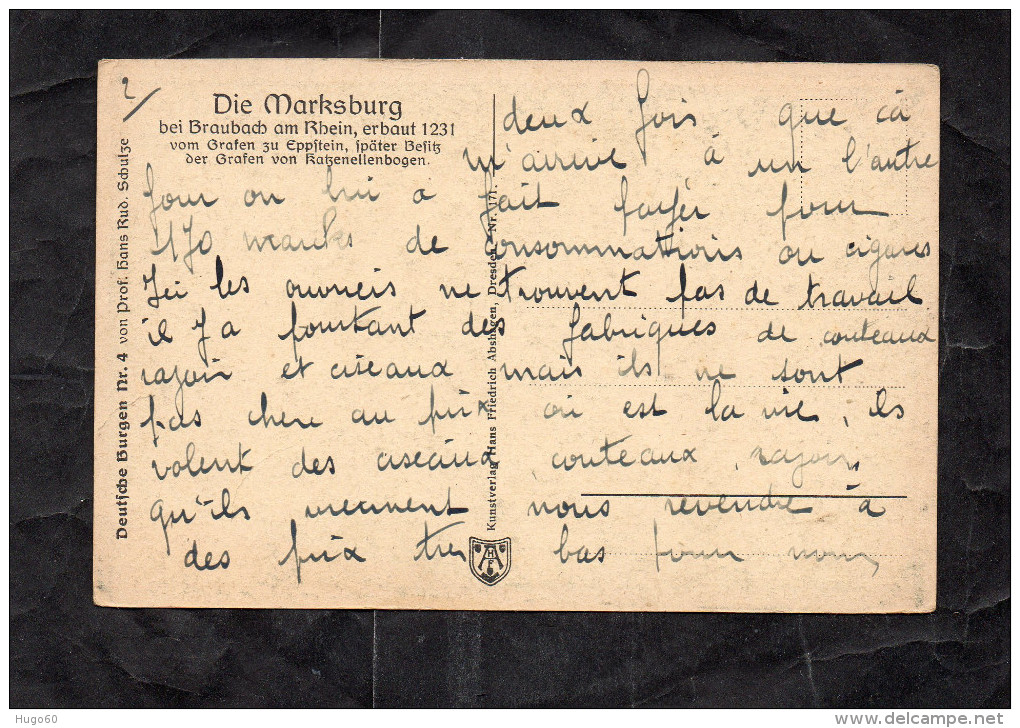 2/
Die Marksburg
bei Braubach am Rhein, erbaut 1231
vom Grafen zu Eppstein, später Besitz
der Grafen von Katzenellenbogen.
Deutsche Burgen Nr. 4 von Prof. Hans Rud. Schulze
Kunstverlag Hans Friedrich Abshagen, Dresden. Nr. 171.
deux fois que ca
m'arrive à un l'autre
jour on lui a fait payer pour
170 marks de consommattions ou cigares
Ici les ouvriers ne trouvent pas de travail
il y a pourtant des fabriques de couteaux
rajoir et ciseaux mais ils ne sont
pas chere au prix ou est la vie, ils
volent des ciseaux, couteaux, rajoir,
qu'ils viennent nous revendre à
des prix tres bas pour nous,
AHF
Hugo60
www.delcampe.net